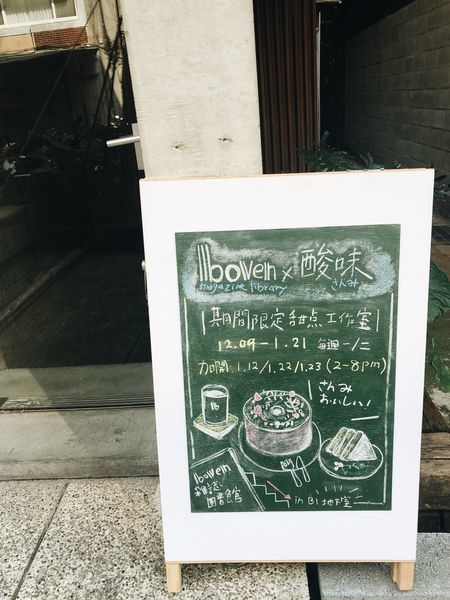 boven x 酸味
magazine library さんみ
期間限定甜点工作室
12.09-1.21 每週一/二
加開 1.12/1.22/1.23 (2-8pm)
さんみ
おいしい!
b
boven
雜誌
圖書館
in B1 地下室